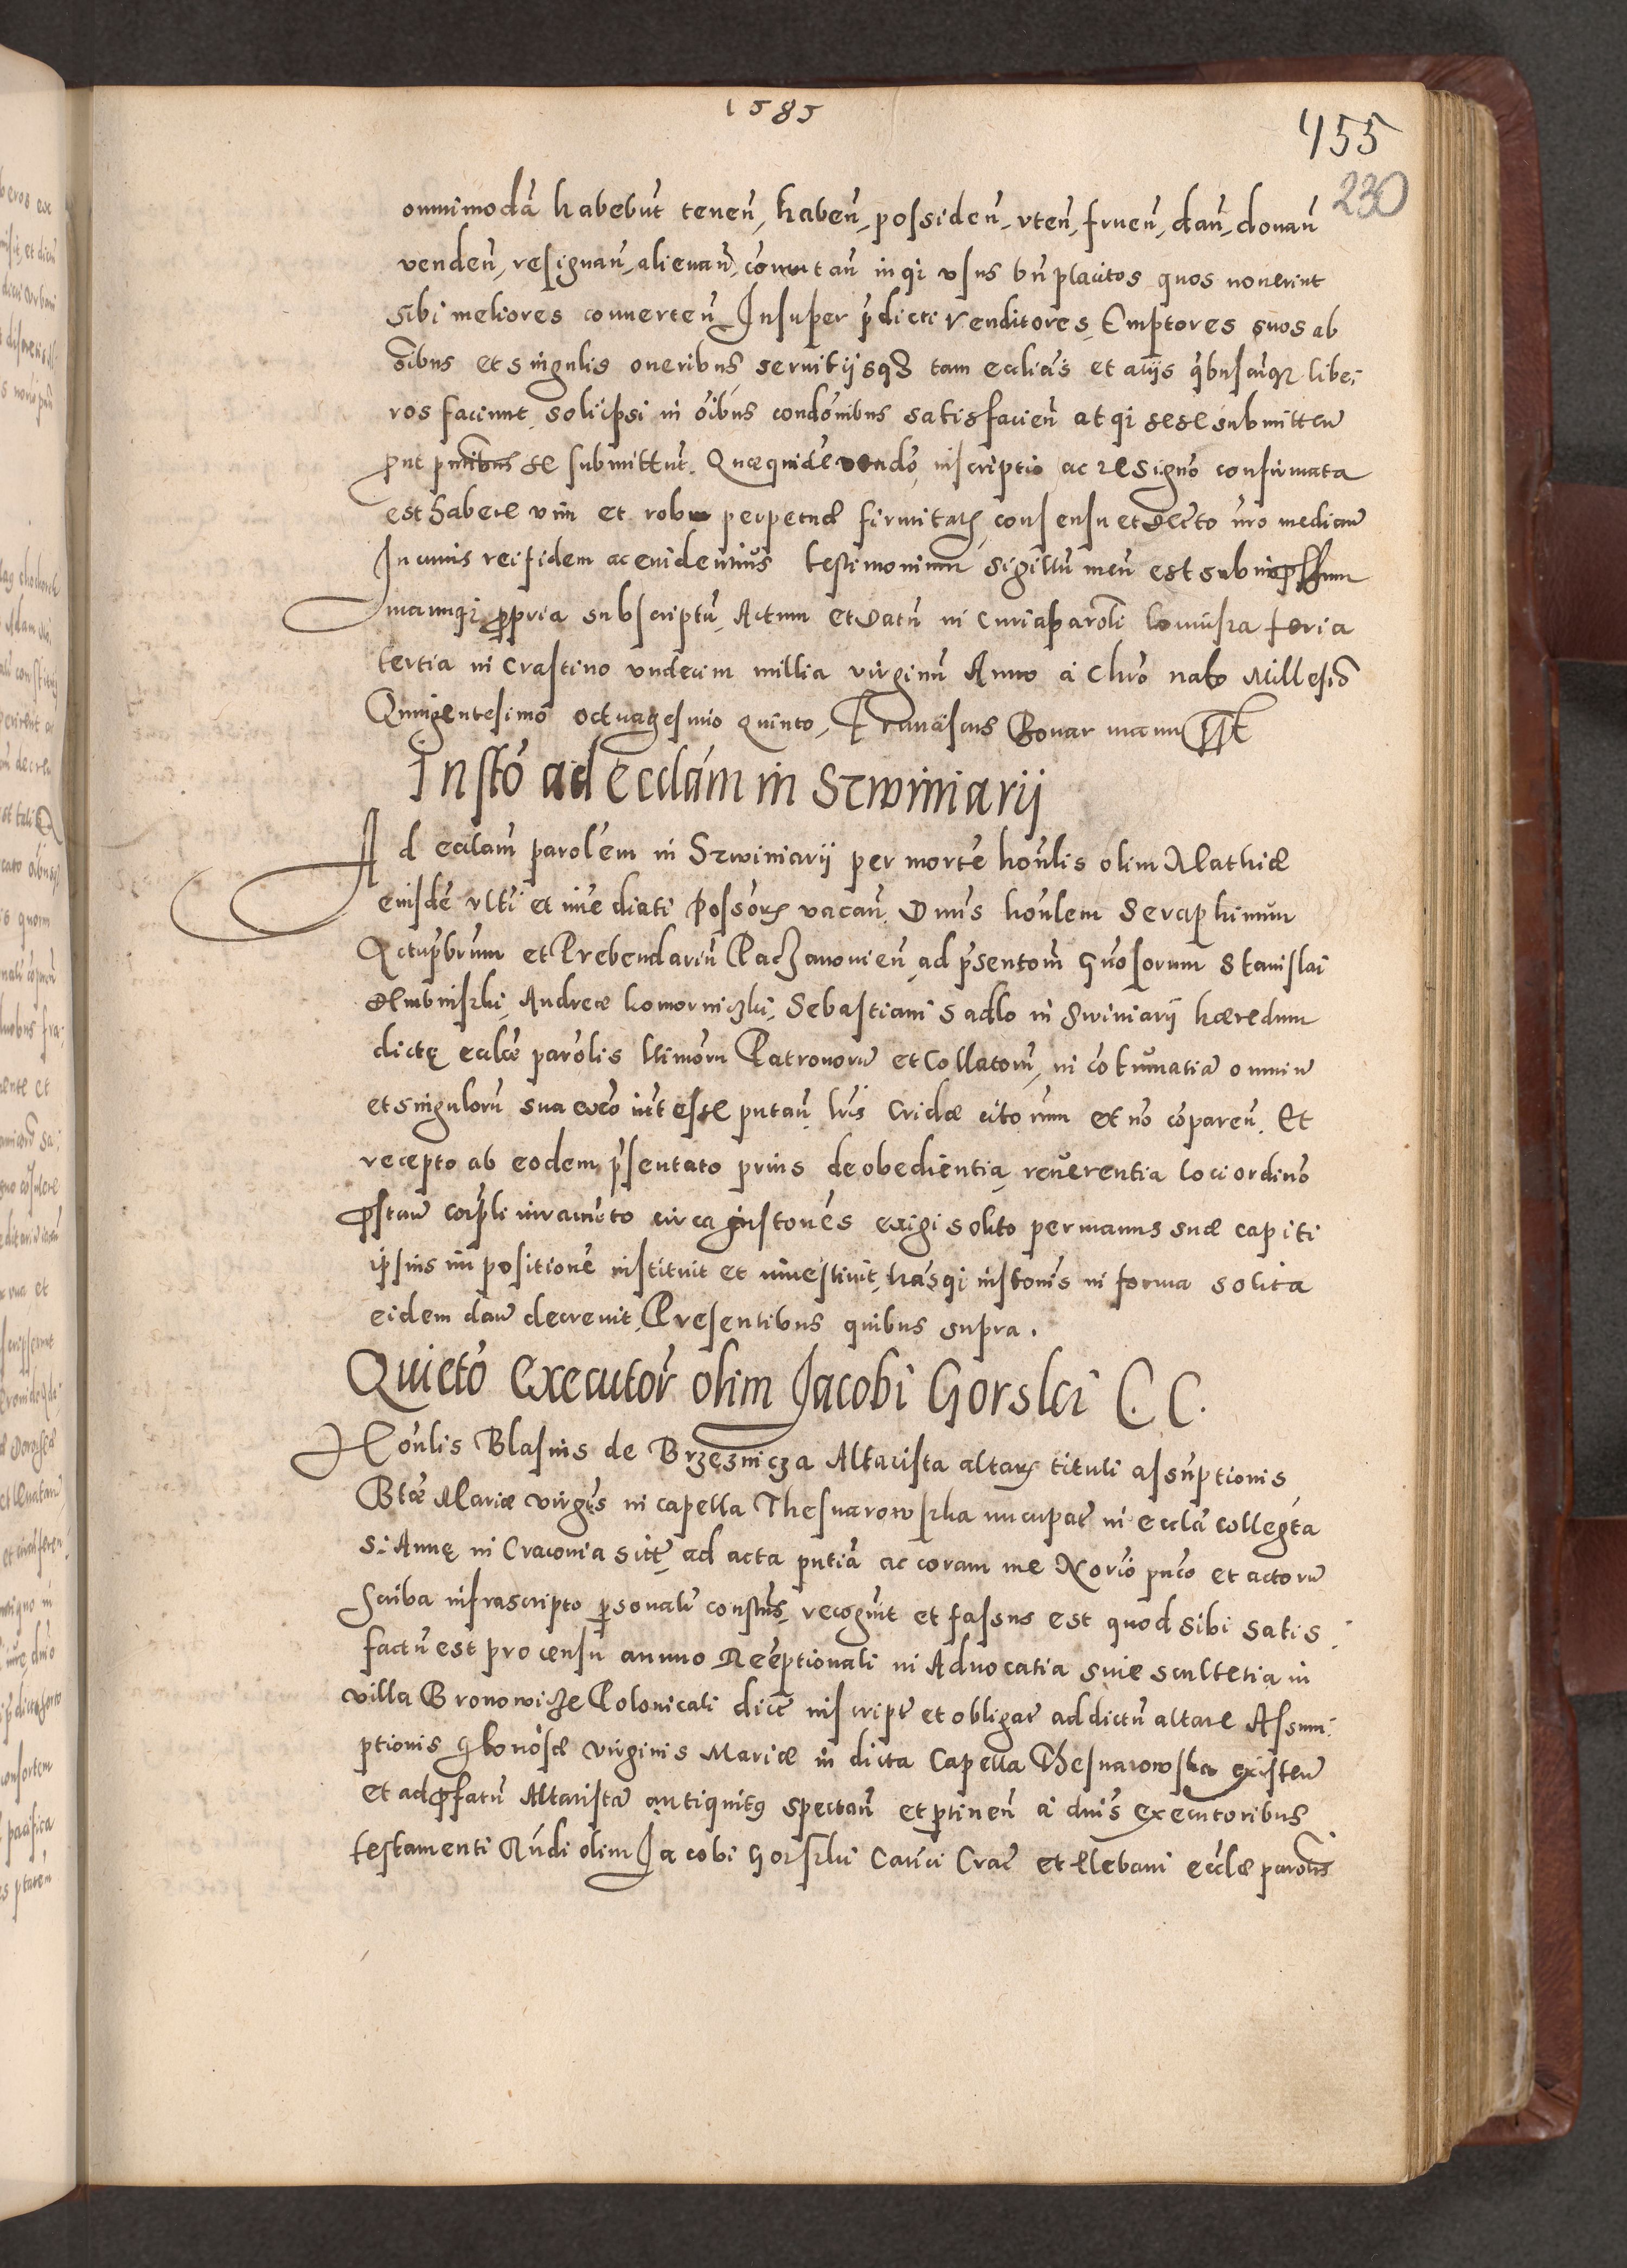 1585
455
230
omnimodā habebūt tenen̄, haben̄, possiden̄, vten̄, fruen̄, dan̄, donan̄
venden̄, resignan̄, alienan̄, com̄utan̄ in qi vsus bn̄placitos quos nouerint
sibi meliores conuerten̄ Insuper p̄dicti Venditores, Emptores suos ab
oībus et singulis oneribus seruitijsqȝ tam eccliās et alijs qībuscunqȝ libe:
ros faciunt, soli ipsi in oībus condōnibus satisfacien̄ atqi sese submitten̄
put se submittūt. Quaequidē vendo, inscriptio ac resignō confirmata
est habere vim et robur perpetuae firmitatis, consensu et decreto nro median̄
In cuius rei fidem ac euidentius testimonium sigillū meū est
manuqȝ propria subscriptū, Actum et Datū in Curia parōli Lomūska feria
tertia in crastino vndecim millia virginū Anno a Chrō nato Millesiō
Quingentesimō octuagesimo quinto, Franciscus Bonar manu ppt
Instō ad Ecclām in Szwiniarÿ
Ad ecclām parolēm in Szwiniarij per mortē honlis olim Mathiae
eiusdē vltī et īmediati possōris vacan̄, Dnūs honlem Seraphimūm
et Prebendariū Paczanouien̄ ad p̄sentom̄ Gnōsorum Stanislai
Dembinskhi, Andreae Komorniczki, Sebastiani Sadlo in Swiniarÿ haeredum
dictę ecclae parōlis ltimōrū Patronorū et Collatorū, in cōtumatiā omniū
et singulorū sua eoco int̄esse putan̄, lrīs Cridae citorum et nō cōparen̄. Et
recepto ab eodem p̄sentato prius de obedientia, reuerentia loci ordinō
prstan̄ corpli iuramēto circa instonēs exigi solito per manus suae capiti
ipsius impositionē instituit et inuestiuit, hāsqi instonīs in forma solita
eidem dan̄ decreuit, Presentibus quibus supra.
Quietō Executor̄ olim Jacobi Gorski C. C.
Honlis Blasius de Brzeznicza Altarista altaris tituli assūptionis
Btae Mariae virgīs in capella Thesnarowskha nucupat̄ in ecclā collegta
S: Annę in Cracouia sitt̄ ad acta pn̄tia ac coram me Norīo puco et actorū
Scriba infrascripto psonalr̄ constūs, recognit et fassus est quod sibi satis
factū est pro censu annuo Reēptionali in Aduocatia siue scultetia in
villa Bronowicze Polonicali dict̄ inscript̄ et obligat̄ ad dictū altare Assum:
ptionis gloriōsae Virginis Mariae in dicta Capella Thesnarowska existen̄
et ad pfatū Altaristā antiquitus spectan̄ et ptinen̄ a dnis executoribus
testamenti Rn̄di olim Jacobi Gorskhi Canci Crac̄ et Plebani ecclae parolis